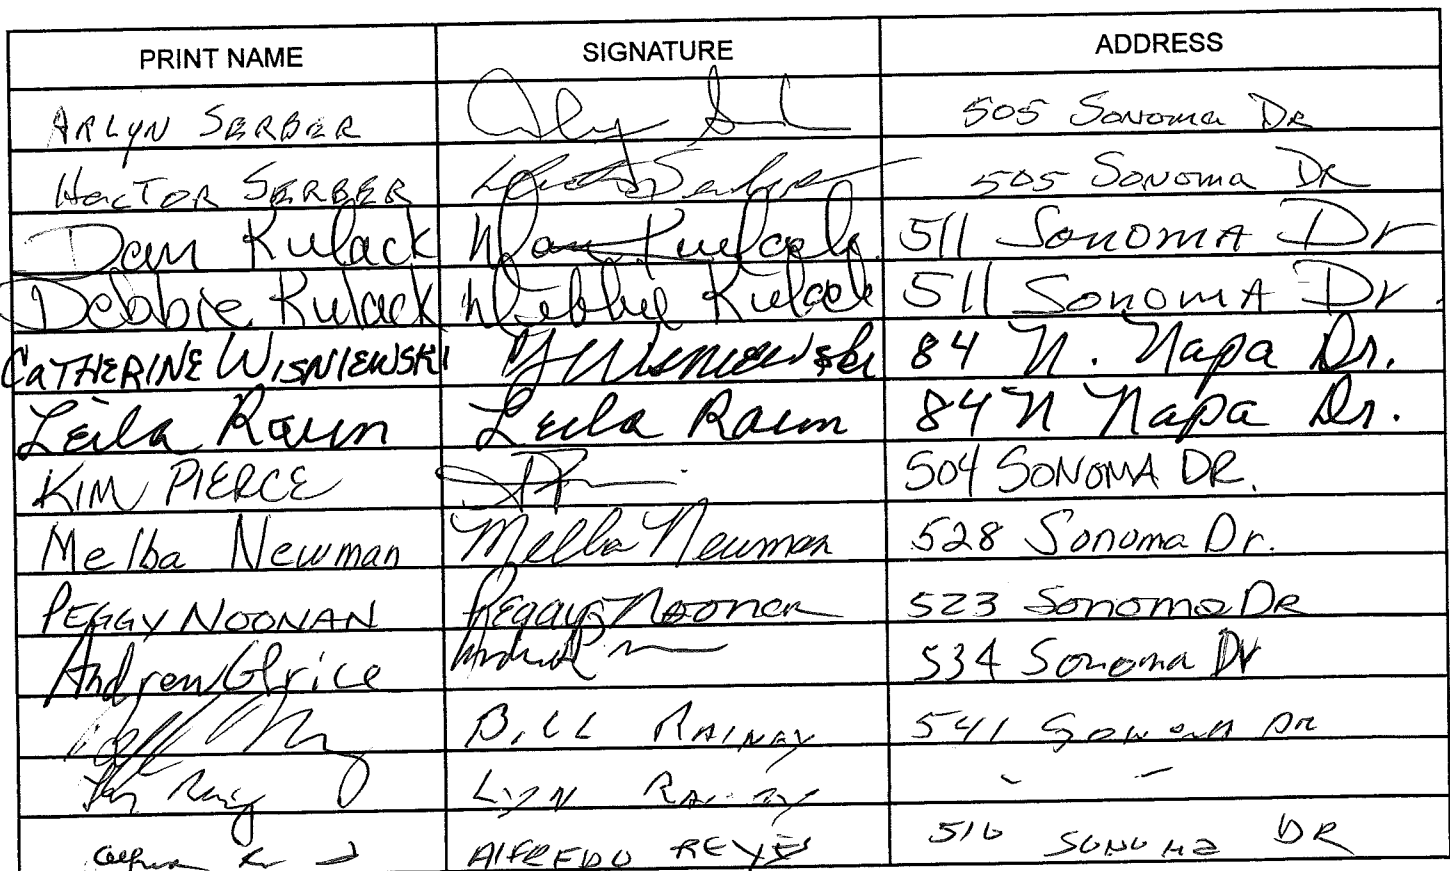 PRINT NAME SIGNATURE ADDRESS
ARLYN SERBER 505 Sonoma DR
HECTOR SERBER Hector Serber 505 Sonoma DR
Dan Kulack Dan Kulack 511 SONOMA Dr
Debbie Kulack Debbie Kulack 511 SONOMA Dr
CATHERINE WISNIEWSKI Wisniewski 84 N. Napa Dr.
Leila Raun Leila Raun 84 N Napa Dr.
KIM PIERCE 504 SONOMA DR.
Melba Newman Melba Newman 528 Sonoma Dr.
PEGGY NOONAN Peggy Noonan 523 Sonoma DR
Andrew 534 Sonoma Dr
BILL RAINEY 541 Sonoma DR
LYN RAINEY
ALFREDO REYES 510 SONOMA DR